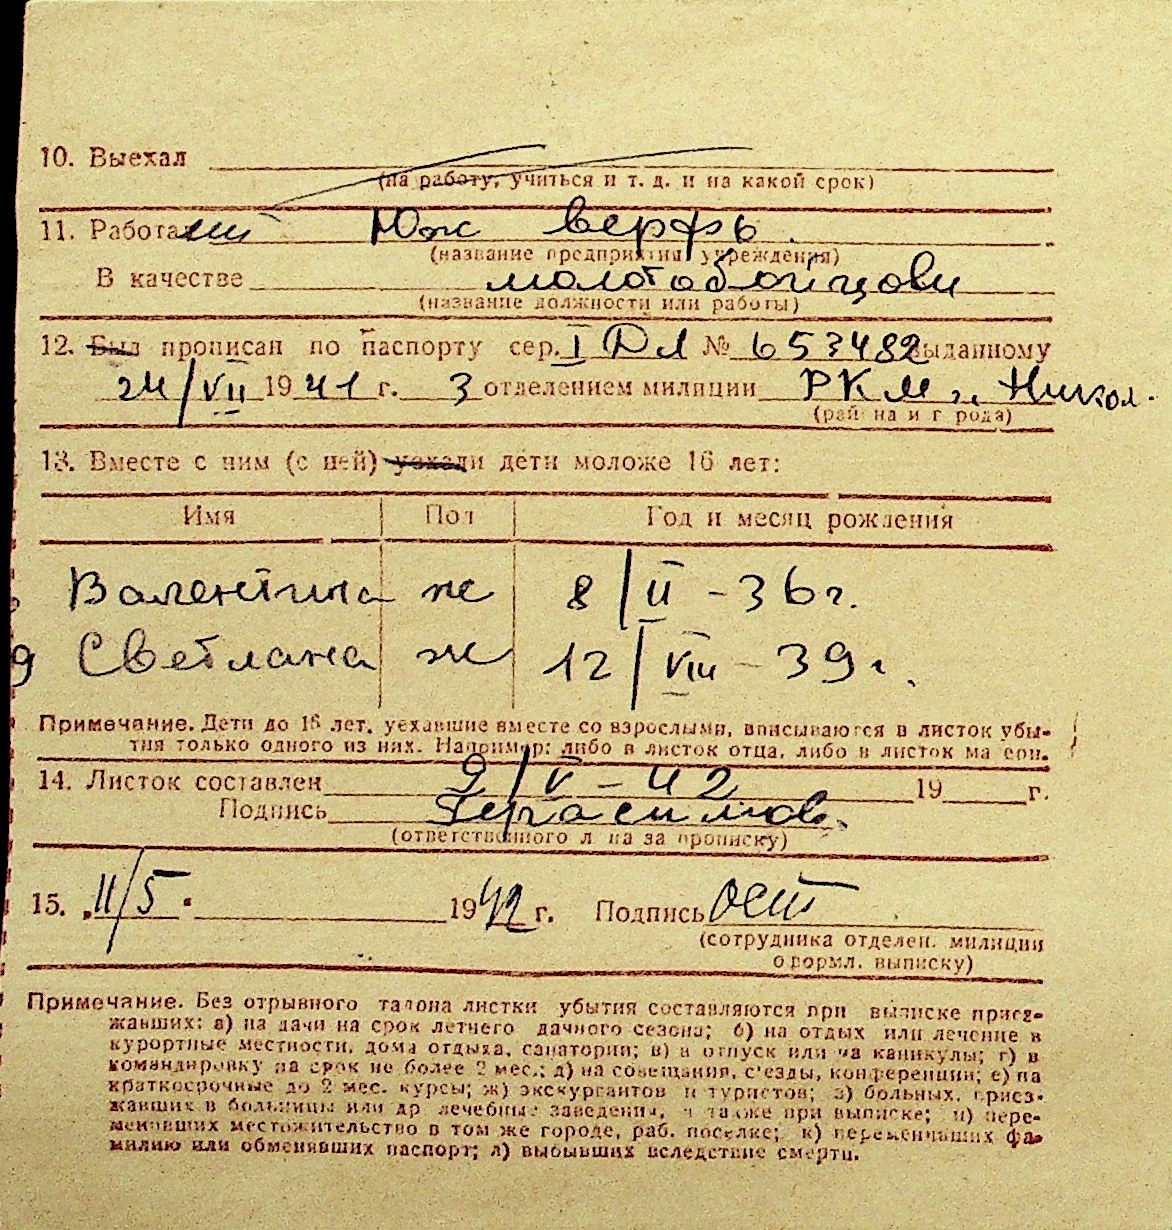 10. Выехал
(на работу, учиться и т. д. и на какой срок)
11. Работает Юж верфь.
(название предприятия учреждения)
В качестве молотобойцови
(название должности или работы)
12. Был прописан по паспорту сер. I ДЛ № 653482 выданному
24/VII 1941 г. 3 отделением милиции РКМ г. Никол.
(район на и г рода)
13. Вместе с ним (с ней) уехали дети моложе 16 лет:
Имя Пол Год и месяц рождения
Валентина ж 8/II - 36 г.
9 Светлана ж 12/VIII - 39 г.
Примечание. Дети до 16 лет, уехавшие вместе со взрослыми, вписываются в листок убы-
тия только одного из них. Например: либо в листок отца, либо в листок ма ери.
14. Листок составлен 9/V - 42 19 г.
Подпись Герасимов.
(ответственного л на за прописку)
15. „11/5" 1942 г. Подпись
(сотрудника отделен. милиции
оформл. выписку)
Примечание. Без отрывного талона листки убытия составляются при выписке приез-
жавших: а) на дачи на срок летнего дачного сезона; б) на отдых или лечение в
курортные местности, дома отдыха, санатории; в) в отпуск или на каникулы; г) в
командировку на срок не более 2 мес.; д) на совещания, с'езды, конференции; е) на
краткосрочные до 2 мес. курсы; ж) экскурсантов и туристов; з) больных, приез-
жавших в больницы или др лечебные заведения, а также при выписке; и) пере-
менивших местожительство в том же городе, раб. поселке; к) переменивших фа-
милию или обменявших паспорт; л) выбывших вследствие смерти.